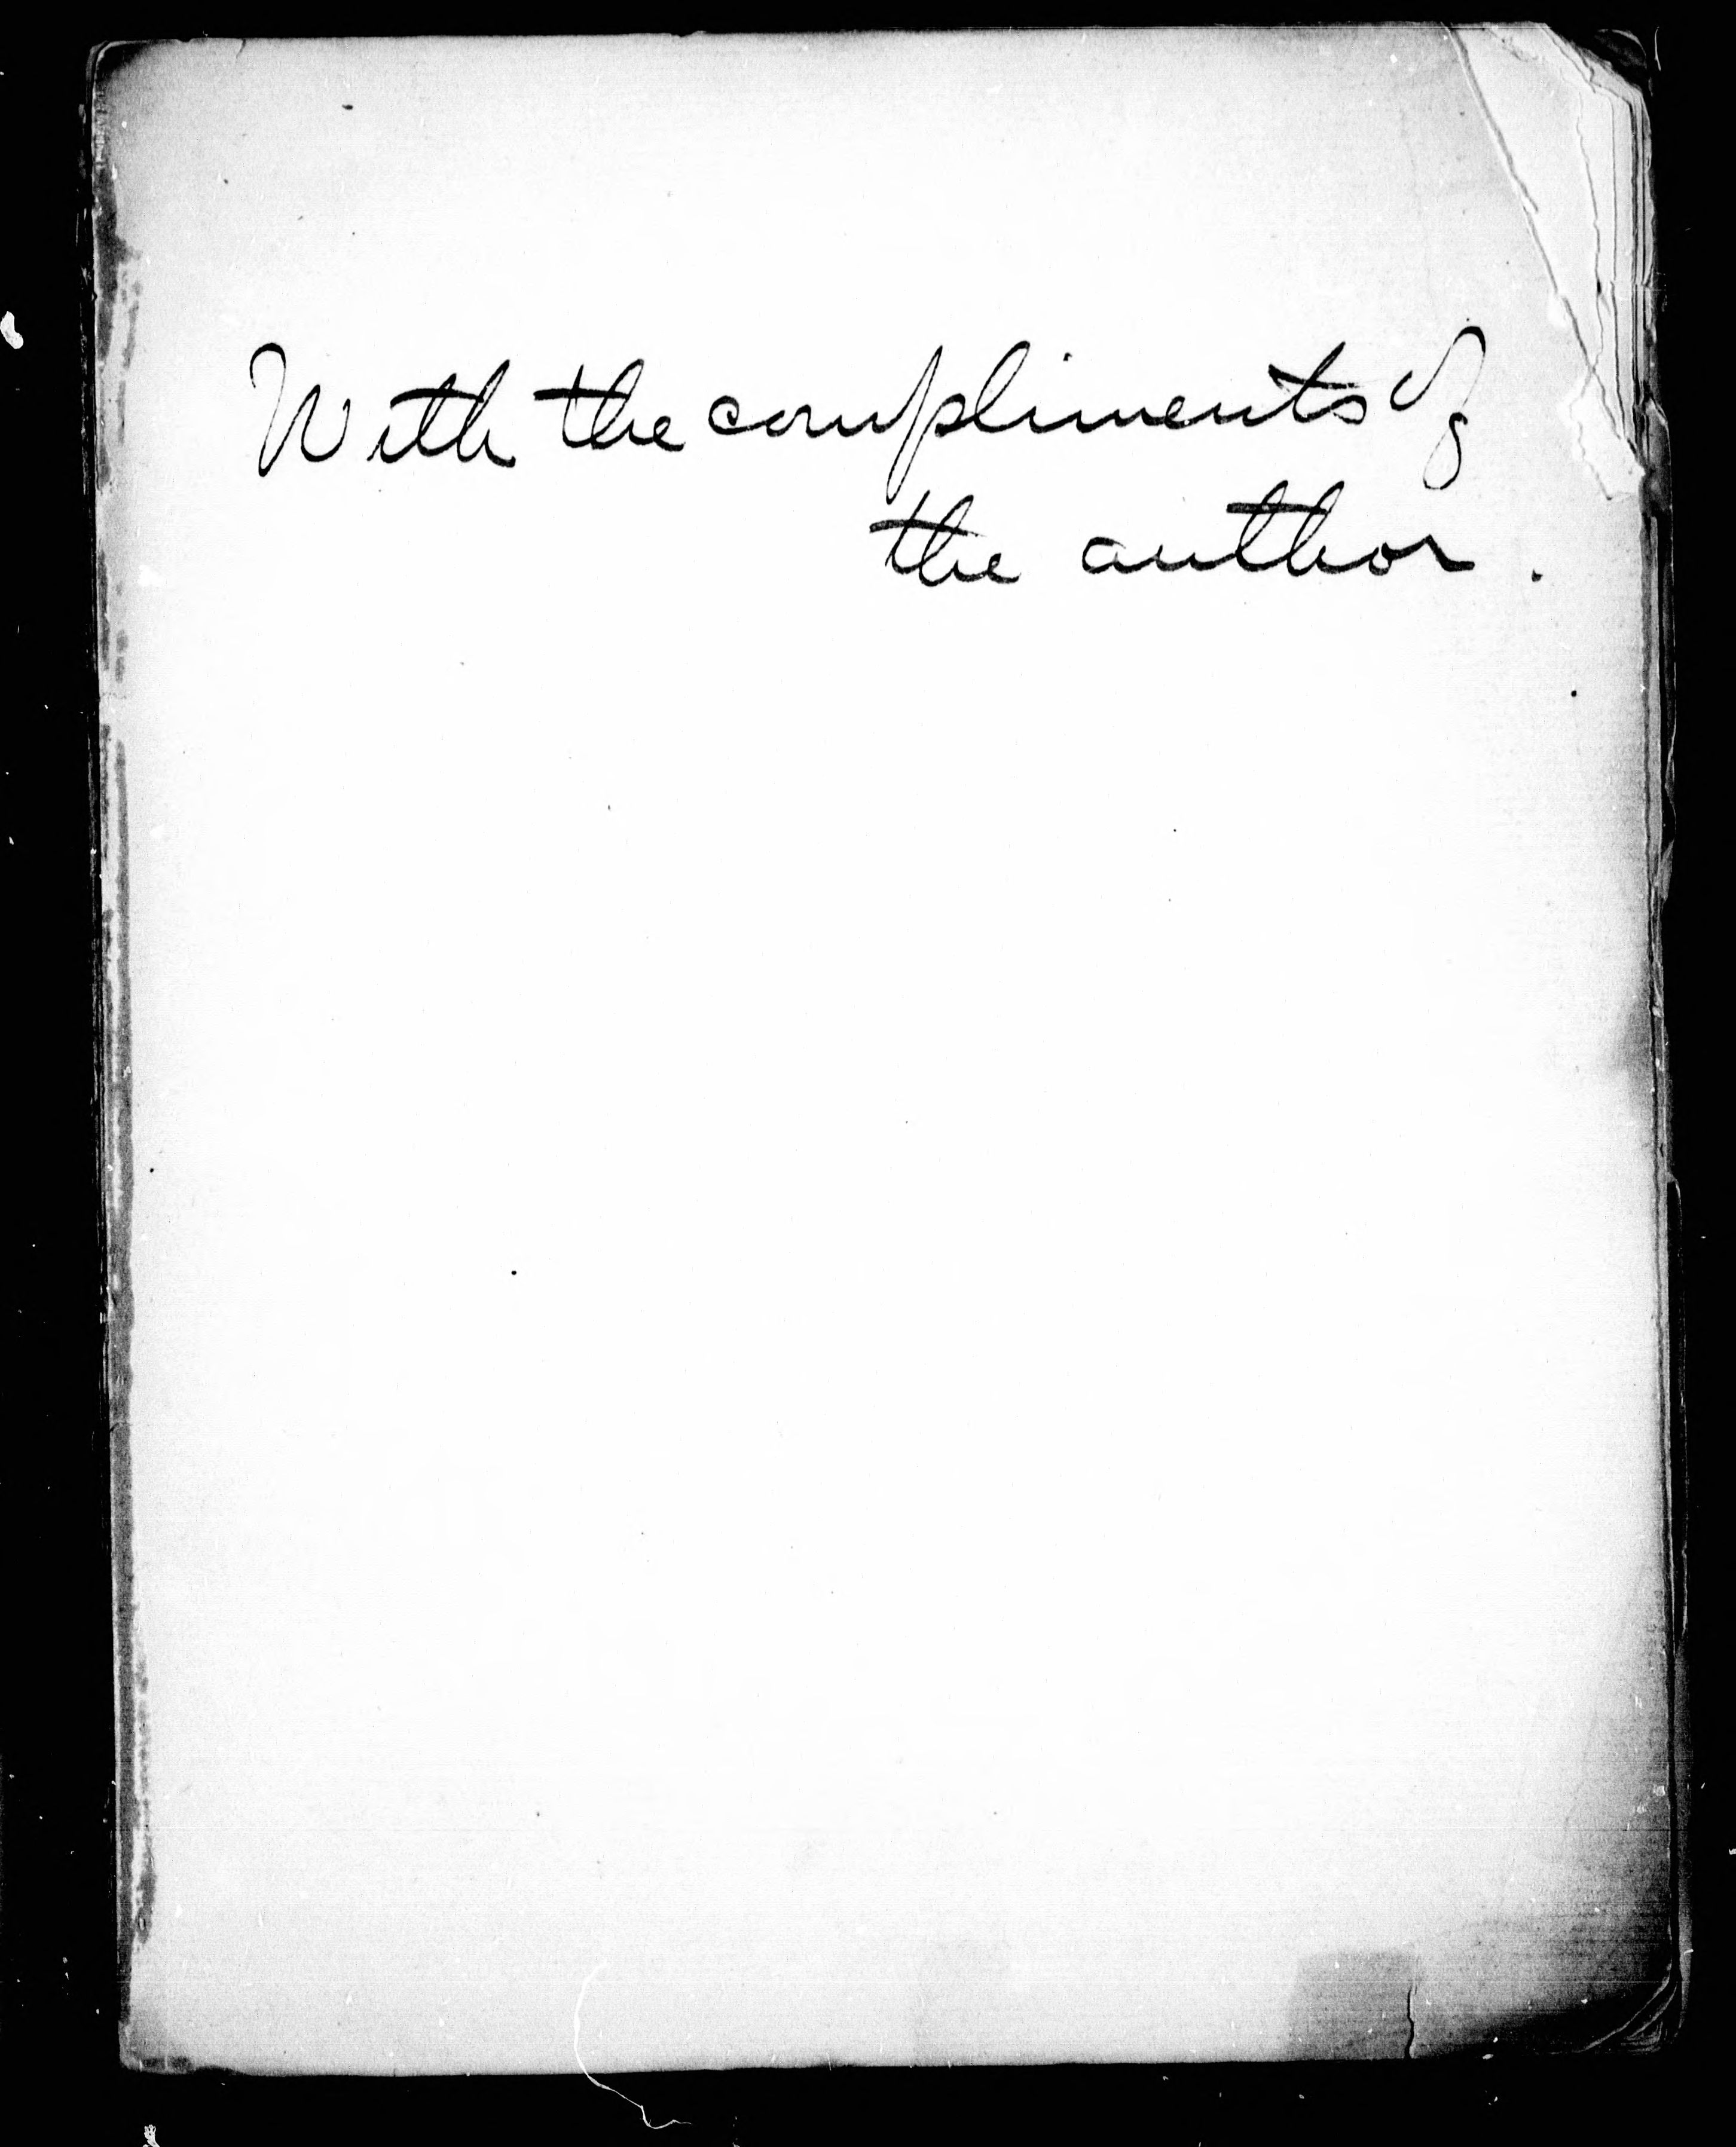 With the compliments of
the author.